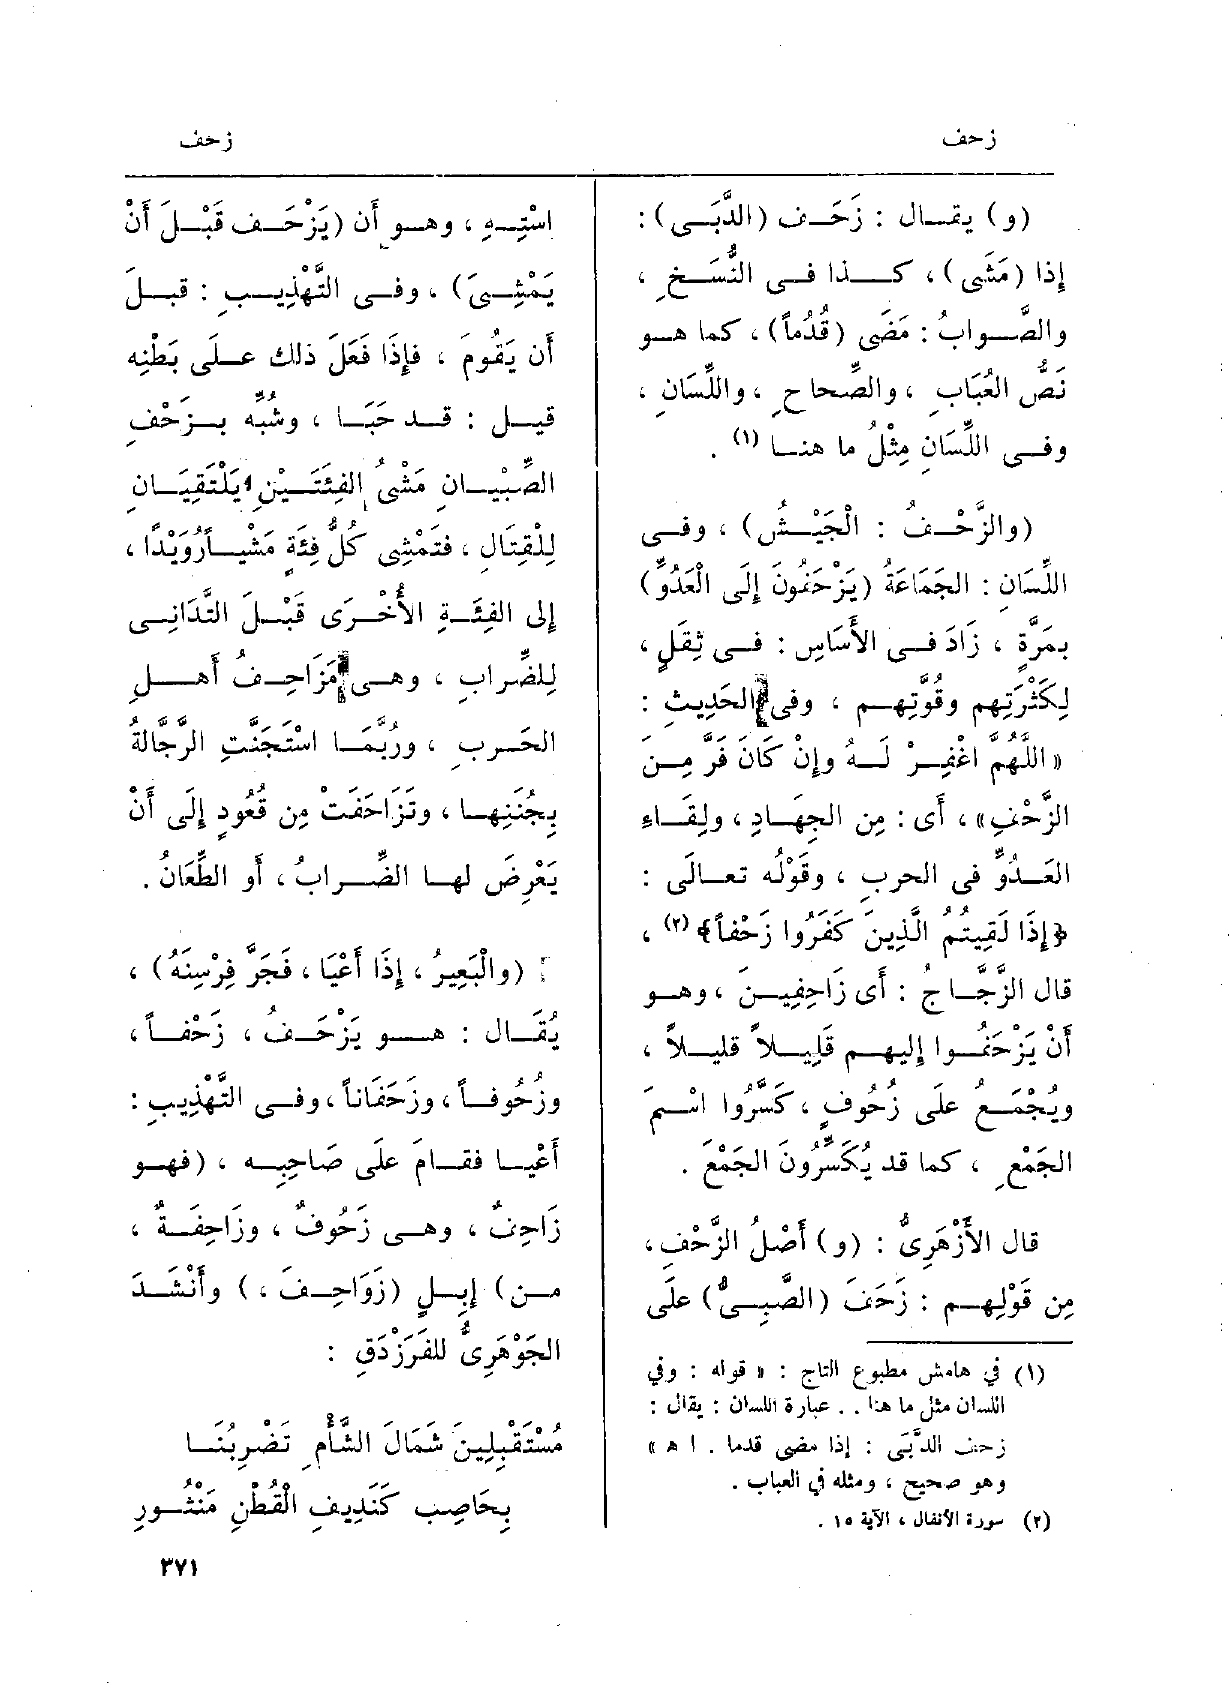 زحف
زحف
(و) يقال : زَحَف (الدَّبَى) :
إذا (مَشَى) ، كذا فى النُّسَخِ ،
والصَّوابُ : مَضَى (قُدُماً) ، كما هو
نَصُّ العُبَابِ ، والصِّحاحِ ، واللِّسَانِ ،
وفى اللِّسَانِ مِثْلُ ما هنا (١) .
(والزَّحْفُ : الْجَيْشُ) ، وفى
اللِّسَانِ : الجَمَاعَةُ (يَزْحَفُونَ إِلَى الْعَدُوِّ)
بمَرَّةٍ ، زَادَ فى الأَسَاسِ : فى ثِقَلٍ ،
لِكَثْرَتِهِم وقُوَّتِهِم ، وفى الحَدِيثِ :
« اللَّهُمَّ اغْفِرْ لَهُ وإِنْ كَانَ فَرَّ مِنَ
الزَّحْفِ » ، أى : مِن الجِهَادِ ، ولِقَاءِ
العَدُوِّ فى الحربِ ، وقَوْلُه تعالَى :
﴿إِذَا لَقِيتُمُ الَّذِينَ كَفَرُوا زَحْفاً﴾ (٢) ،
قال الزَّجَّاجُ : أَى زَاحِفِينَ ، وهو
أَنْ يَزْحَفُوا إِليهم قَلِيلاً قليلاً ،
ويُجْمَعُ علَى زُحُوفٍ ، كَسَّرُوا اسْمَ
الجَمْعِ ، كما قد يُكَسِّرُونَ الجَمْعَ .
قال الأَزْهَرِىُّ : (و) أَصْلُ الزَّحْفِ ،
مِن قَوْلِهِم : زَحَفَ (الصَّبِىُّ) علَى
(١) في هامش مطبوع التاج : « قوله : وفي
اللسان مثل ما هنا . . عبارة اللسان : يقال :
زحف الدَّبَى : إذا مضى قدما . ا ه »
وهو صحيح ، ومثله في العباب .
(٢) سورة الأنفال ، الآية ١٥ .
اسْتِهِ ، وهو أَن (يَزْحَف قَبْلَ أَنْ
يَمْشِىَ) ، وفى التَّهْذِيبِ : قبلَ
أَن يَقُومَ ، فإِذَا فَعَلَ ذلك علَى بَطْنِه
قيل : قد حَبَا ، وشُبِّه بزَحْفِ
الصِّبْيانِ مَشْىُ الفِئَتَيْنِ يَلْتَقِيَانِ
لِلْقِتَالِ ، فتَمْشِى كُلُّ فِئَةٍ مَشْياً رُوَيْدًا ،
إلى الفِئَةِ الأُخْرَى قَبْلَ التَّدَانِى
لِلضِّرابِ ، وهى مَزَاحِفُ أَهلِ
الحَربِ ، ورُبَّمَا اسْتَجَنَّتِ الرَّجَّالَةُ
بِجُنَنِها ، وتَزَاحَفَتْ مِن قُعُودٍ إِلَى أَنْ
يَعْرِضَ لها الضِّرابُ ، أَو الطِّعَانُ .
(والْبَعِيرُ ، إِذَا أَعْيَا ، فَجَرَّ فِرْسِنَهُ) ،
يُقَال : هو يَزْحَفُ ، زَحْفاً ،
وزُحُوفاً ، وزَحَفَاناً ، وفى التَّهْذِيبِ :
أَعْيا فقامَ علَى صَاحِبِه ، (فهو
زَاحِفٌ ، وهى زَحُوفٌ ، وزَاحِفَةٌ ،
من) إِبِلٍ (زَوَاحِفَ ، ) وأَنْشَدَ
الجَوْهَرِىُّ للفَرَزْدَقِ :
مُسْتَقْبِلِينَ شَمَالَ الشَّأْمِ تَضْرِبُنَا
بِحَاصِبٍ كَنَدِيفِ الْقُطْنِ مَنْثُورِ
٣٧١